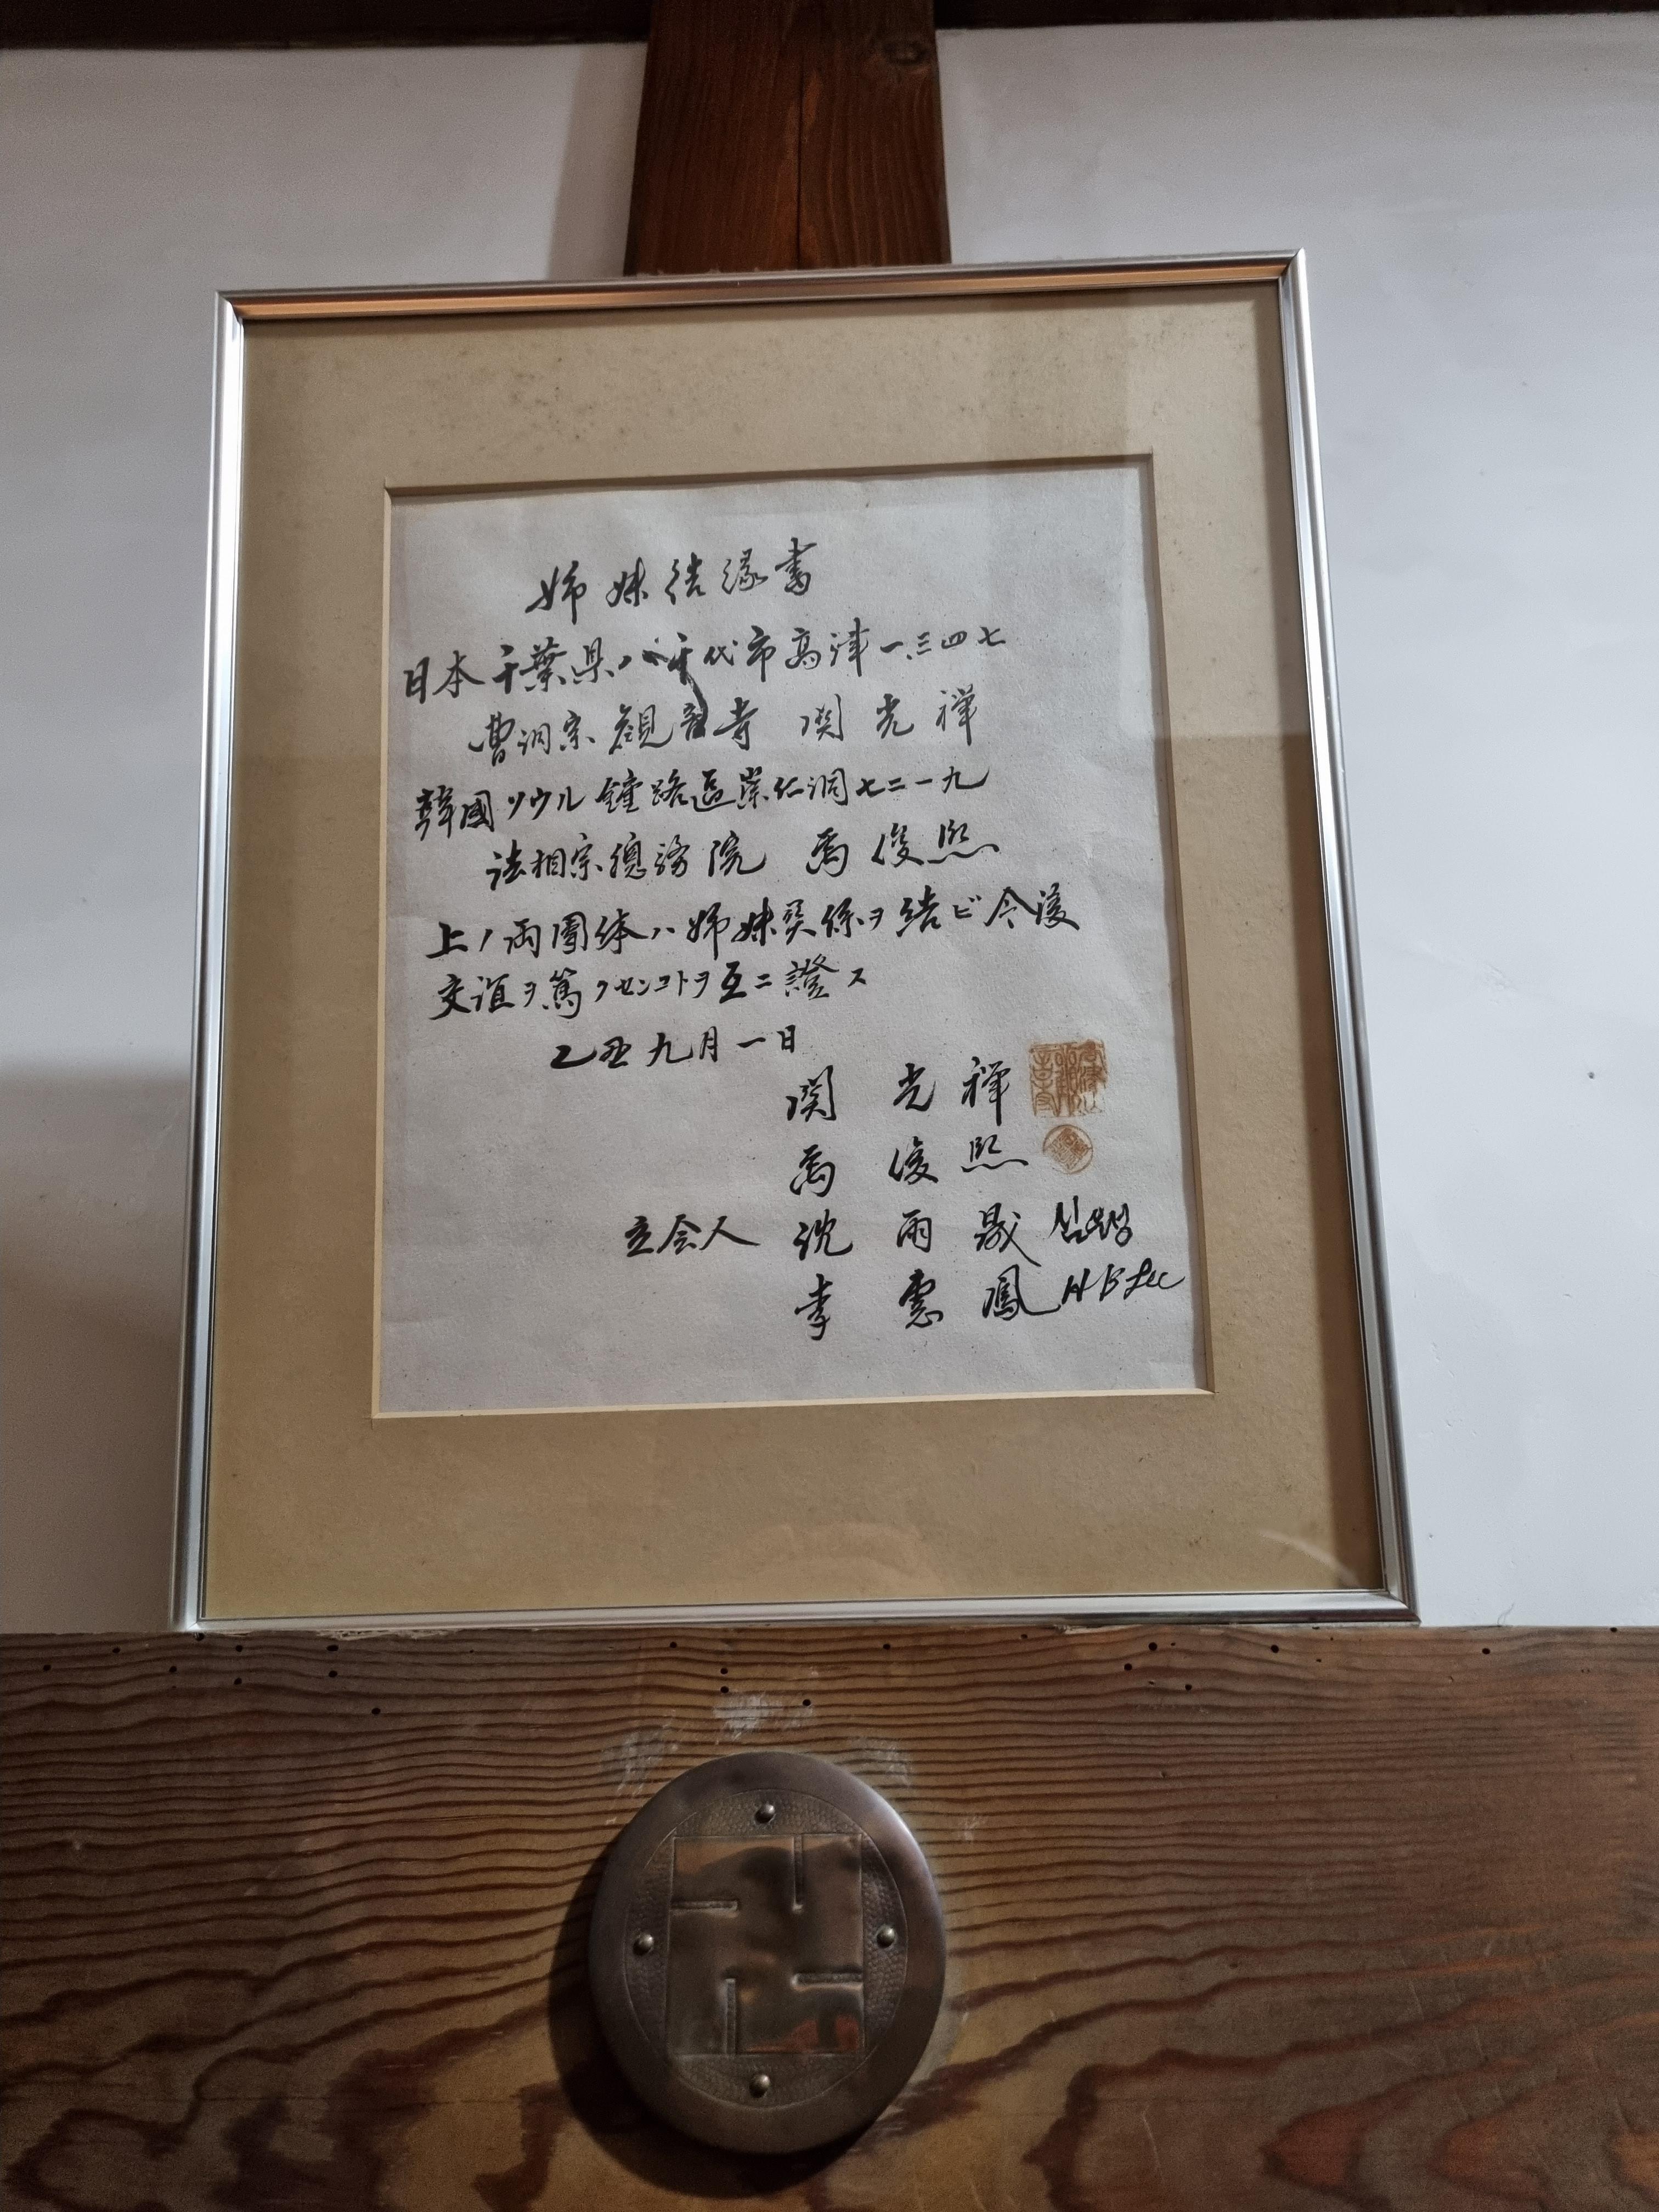 姉妹結縁書
日本千葉県八千代市高津一三四七
曹洞宗觀音寺 関光禅
韓國ソウル鐘路區崇仁洞七二一九
法相宗總務院 禹俊熙
上ノ両團体ハ姉妹関係ヲ結ビ今後
交誼ヲ篤クセンコトヲ互ニ證ス
乙丑九月一日
関 光 禅
禹 俊 熙
立会人 沈 雨 晟 심우성
李 惠 鳳 H B Lee